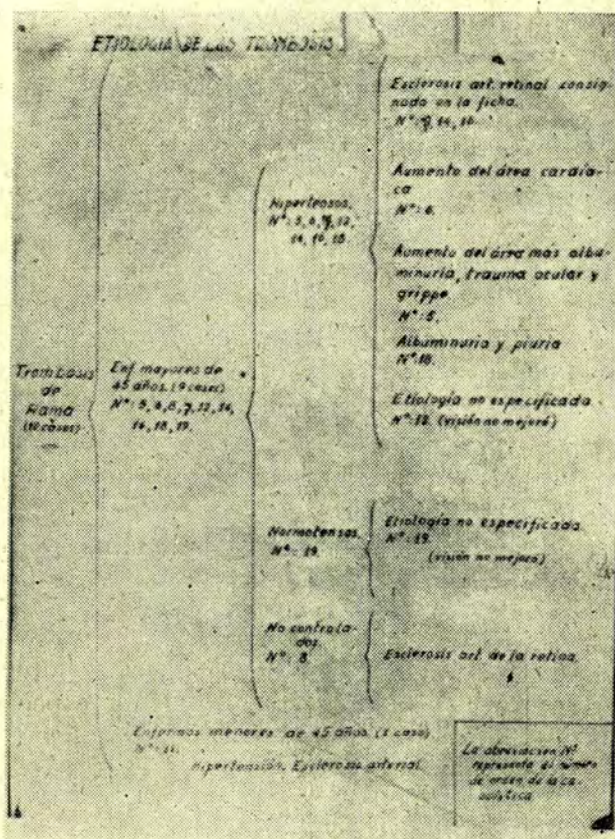 ETIOLOGIA DE LAS TROMBOSIS
Trombosis
de
Rama
(10 casos)
Enf. mayores de
45 años. (9 casos)
Nº: 5, 6, 8, 9, 12, 14,
16, 18, 19.
Hipertensos.
Nº: 5, 6, 9, 12,
14, 16, 18.
Esclerosis art. retinal consig-
nado en la ficha.
Nº: 9, 14, 16.
Aumento del área cardía-
ca
Nº: 6.
Aumento del área más albu-
minuria, trauma ocular y
grippe.
Nº: 5.
Albuminuria y piuria
Nº: 18.
Etiología no especificada.
Nº: 12. (visión no mejoró)
Normotensos.
Nº: 19.
Etiología no especificada.
Nº: 19.
(visión no mejoró)
No controla-
dos.
Nº: 8.
Esclerosis art. de la retina.
Enfermos menores de 45 años. (1 caso)
Nº: 11.
Hipertensión. Esclerosis arterial
La abreviación Nº
representa el número
de orden de la ca-
suística